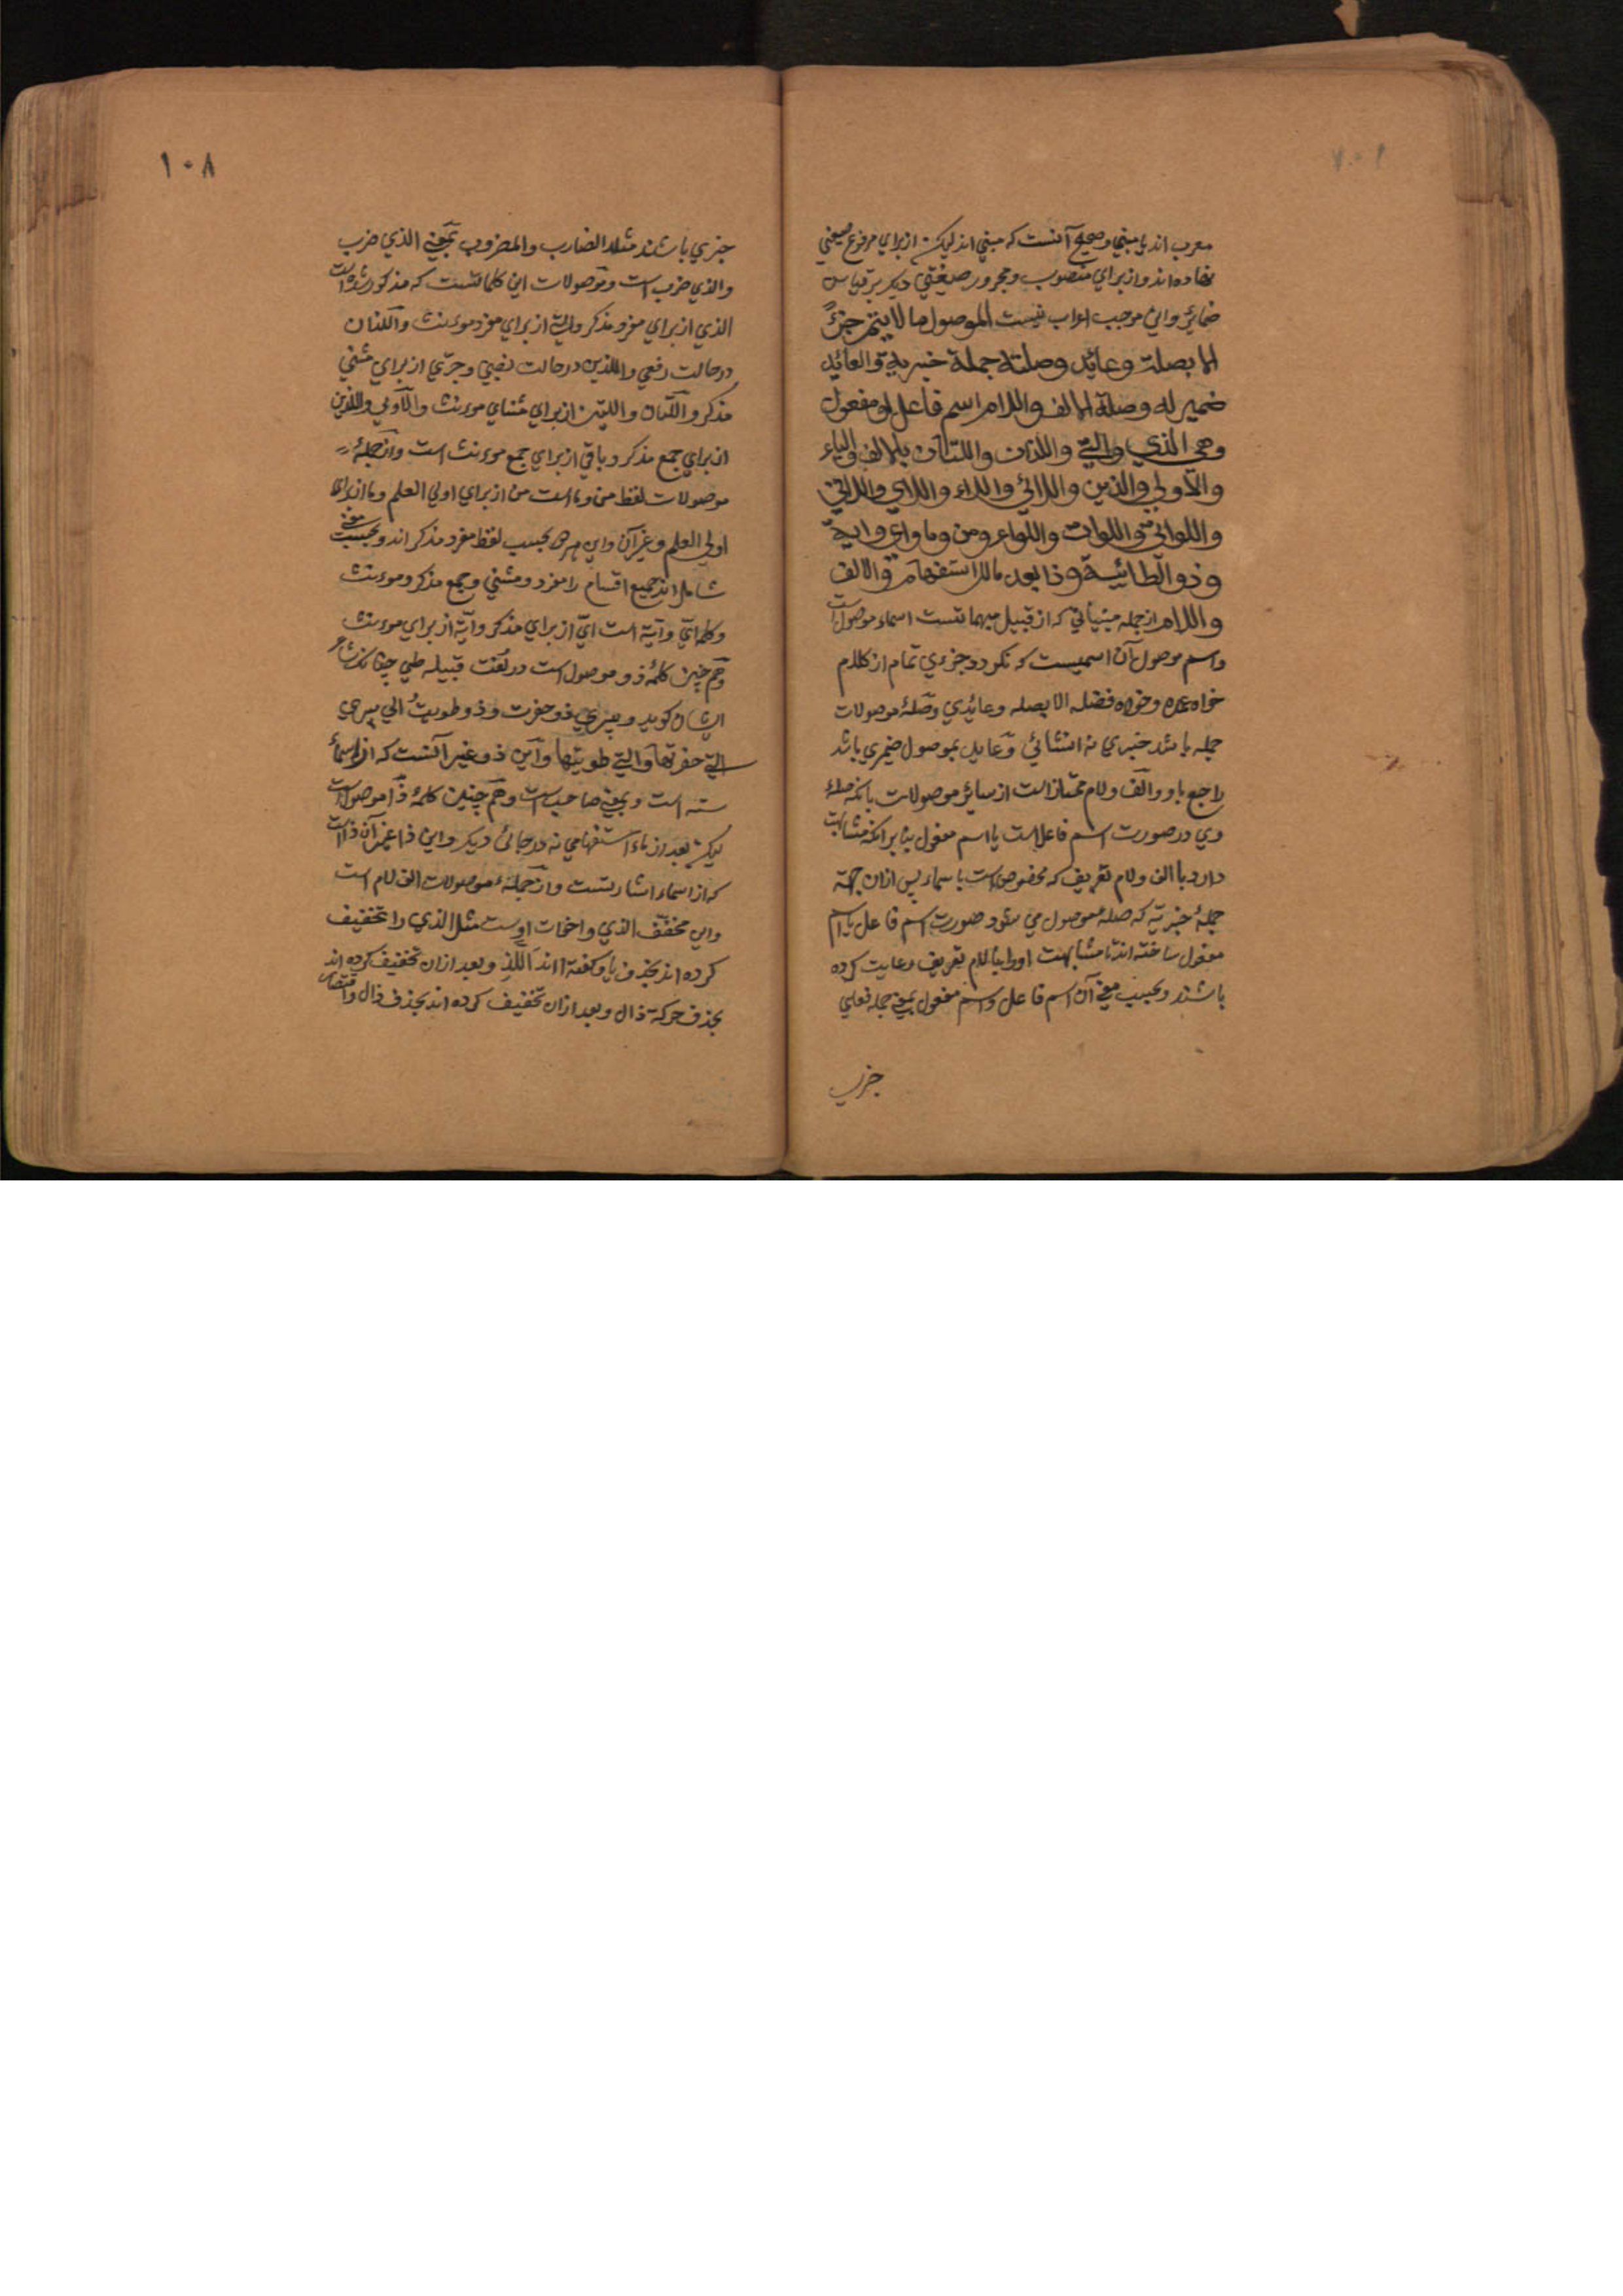 ۱۰۷
معرب اند یا مبني وصحیح آنست که مبني اند لیکن از براي مرفوع صیغتي
نهاده اند و از براي منصوب و مجرور صیغتي دیکر بر قیاس
ضمائر و این موجب اعراب نیست الموصول ما لا یتم جزءً
الا بصلة وعائد وصلته جملة خبریة والعائد
ضمیر له وصلة الالف واللام اسم فاعل او مفعول
وهي الذي والتي واللذان واللتان بالالف والیاء
والاولی والذین واللائي واللاء واللاي واللاتي
واللواتي واللوات واللواء ومن وما واي وایة
وذو الطائیة وذا بعد ما للاستفهام والالف
واللام از جمله مبنیاتي که از قبیل مبهماتست اسماء موصول است
واسم موصول آن اسمیست که نکردد جزءي تمام از کلام
خواه عمده وخواه فضله الا بصله وعائدي وصلهٔ موصولات
جمله باشد خبري نه انشائي وعاید بموصول ضمیري باشد
راجع باو والف ولام ممتاز است از سائر موصولات بانکه صلهٔ
وي در صورت اسم فاعل است یا اسم مفعول بنا بر انکه مشابهت
دارد با الف ولام تعریف که مخصوص است باسماء پس ازان جهة
جملهٔ خبریّه که صلهٔ موصول مي شود صورت اسم فاعل یا اسم
مفعول ساخته اند تا مشابهت اورا با لام تعریف رعایت کرده
باشند وبحسب معني آن اسم فاعل واسم مفعول بمعني جمله فعلي
خبري
۱۰۸
خبري باشند مثلا الضارب والمضروب بمعني الذي ضرب
والذي ضرب است وموصولات این کلماتست که مذکور شده است
الذي از براي مفرد مذکر والتي از براي مفرد موءنث واللذان
در حالت رفعي واللذین در حالت نصبي وجرّي از براي مثني
مذکر واللتان واللتین از براي مثناي موءنث والاولی والذین
از براي جمع مذکر وباقي از براي جمع موءنث است واز جملهٔ
موصولات لفظ من وما است من از براي اولي العلم وما از براي
اولي العلم وغیر آن واین هر دو بحسب لفظ مفرد مذکر اند وبحسب معني
شامل اند جمیع اقسام را مفرد ومثني وجمع مذکر وموءنث
وکلمه ايّ وایّة است ايّ از براي مذکر وایّة از براي موءنث
وهم چنین کلمهٔ ذو موصول است در لغت قبیله طي چنانکه شاعر
ایشان کوید وبیري ذو حفرت وذو طویتُ الي بیري
التي حفرتها والتي طویتها واین ذو غیر آنست که از اسماء
سته است وبمعني صاحب است وهم چنین کلمهٔ ذا موصول است
لیکن بعد از ماء استفهامي نه در جائي دیکر واین ذا غیر آن ذا است
که از اسماء اشارتست واز جملهء موصولات الف لام است
واین مخفّف الذي واخوات اوست مثل الذي را تخفیف
کرده اند بحذف یا وکفته اند اللذِ وبعد ازان تخفیف کرده اند
بحذف حرکة ذال وبعد ازان تخفیف کرده اند بحذف ذال واقتصار